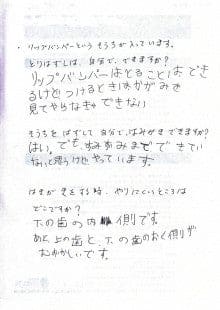 ・リップバンパーというそうちが入っています。
とりはずしは、自分で、できますか？
リップバンパーはとることはでき
るけどつけるときはかがみで
見てやらなきゃできない
そうちをはずして自分で、はみがきできますか？
はい。でも、すみずみまでできてい
ないと思うけどやっています。
はみがきをする時、やりにくいところは
どこですか？
下の歯の内側です。
あと、上の歯と、下の歯のおく側が
むずかしいです。